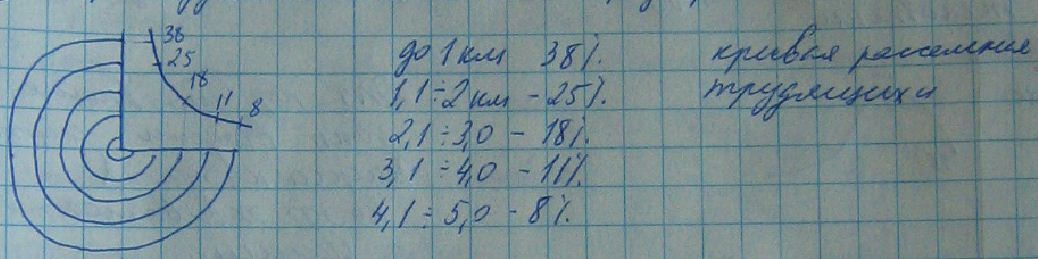 38
25
18
11
8
до 1 км 38%.
1,1 ÷ 2 км - 25%.
2,1 ÷ 3,0 - 18%.
3,1 ÷ 4,0 - 11%.
4,1 ÷ 5,0 - 8%.
кривая расселения
трудящихся